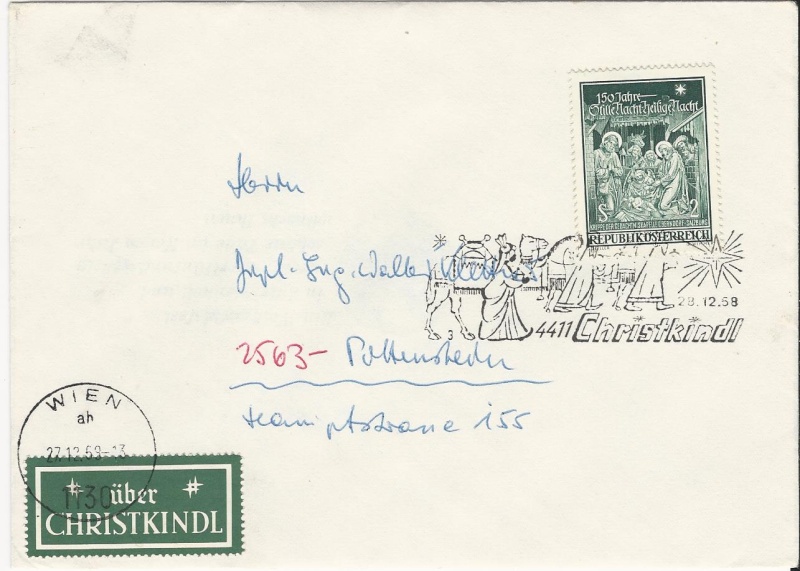 150 Jahre
Stille Nacht, heilige Nacht
S 2
KRIPPE DER GEDÄCHTNISKAPELLE OBERNDORF-SALZBURG
REPUBLIK ÖSTERREICH
Herrn
Dipl. Ing. Walter
28.12.68
3 4411 Christkindl
2563- Pottenstein
Hauptstrasse 155
WIEN
ah
27.12.68-13
1130
über
CHRISTKINDL